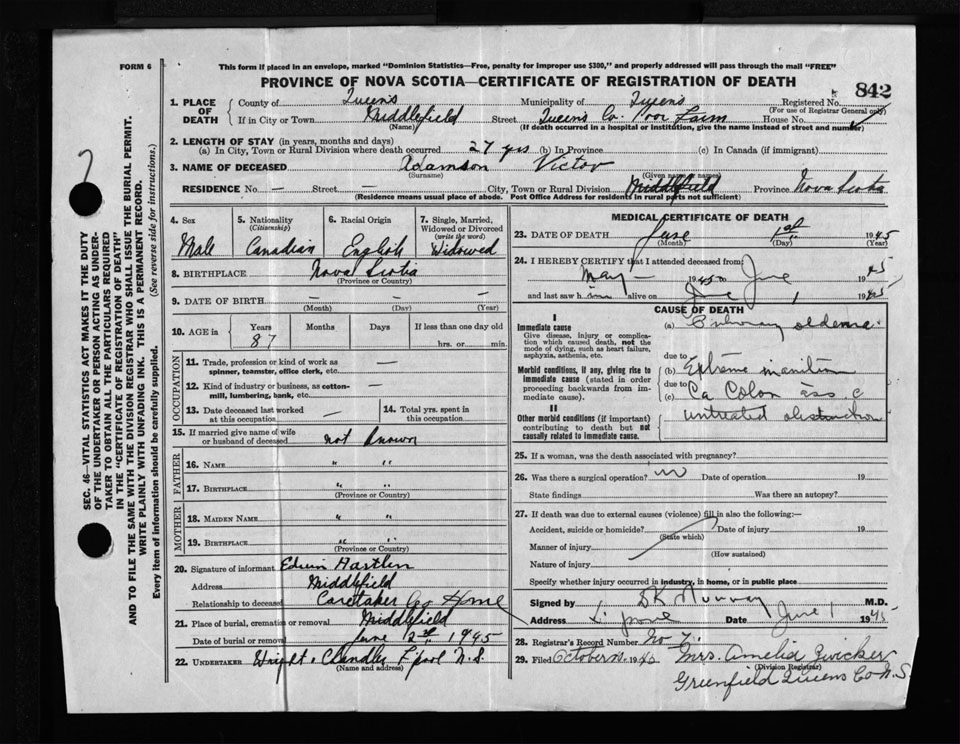 FORM 6
This form if placed in an envelope, marked "Dominion Statistics—Free, penalty for improper use $300," and properly addressed will pass through the mail "FREE"
PROVINCE OF NOVA SCOTIA—CERTIFICATE OF REGISTRATION OF DEATH
842
1. PLACE OF DEATH County of Queens Municipality of Queens Registered No.
(For use of Registrar General only)
If in City or Town Middlefield Street Queens Co. Poor Farm House No.
(Name) (If death occurred in a hospital or institution, give the name instead of street and number)
2. LENGTH OF STAY (in years, months and days)
(a) In City, Town or Rural Division where death occurred 27 yrs (b) In Province (c) In Canada (if immigrant)
3. NAME OF DECEASED Adamson Victor
(Surname) (Given name or names)
RESIDENCE No. — Street — City, Town or Rural Division Middlefield Province Nova Scotia
(Residence means usual place of abode. Post Office Address for residents in rural parts not sufficient)
4. Sex
Male
5. Nationality
(Citizenship)
Canadian
6. Racial Origin
English
7. Single, Married, Widowed or Divorced
(write the word)
Widowed
8. BIRTHPLACE Nova Scotia
(Province or Country)
9. DATE OF BIRTH — — —
(Month) (Day) (Year)
10. AGE in Years Months Days If less than one day old
87 hrs. or min.
OCCUPATION
11. Trade, profession or kind of work as —
spinner, teamster, office clerk, etc.
12. Kind of industry or business, as cotton- —
mill, lumbering, bank, etc.
13. Date deceased last worked —
at this occupation
14. Total yrs. spent in
this occupation
15. If married give name of wife
or husband of deceased not Known
FATHER
16. NAME " "
17. BIRTHPLACE " "
(Province or Country)
MOTHER
18. MAIDEN NAME " "
19. BIRTHPLACE " "
(Province or Country)
20. Signature of informant Edwin Hartlin
Address Middlefield
Relationship to deceased Caretaker Co Home
21. Place of burial, cremation or removal Middlefield
Date of burial or removal June 2nd 1945
22. UNDERTAKER Wright & Chandler L'pool N.S.
(Name and address)
MEDICAL CERTIFICATE OF DEATH
23. DATE OF DEATH June 1st 1945
(Month) (Day) (Year)
24. I HEREBY CERTIFY that I attended deceased from
May — 1945 to June 1945
and last saw him alive on June 1 1945
CAUSE OF DEATH
I
Immediate cause
Give disease, injury or complication which caused death, not the mode of dying, such as heart failure, asphyxia, asthenia, etc.
(a) oedema
due to
Morbid conditions, if any, giving rise to immediate cause (stated in order proceeding backwards from immediate cause).
(b) Extreme inanition
due to
(c) Ca Colon
untreated obstruction
II
Other morbid conditions (if important) contributing to death but not causally related to immediate cause.
25. If a woman, was the death associated with pregnancy?
26. Was there a surgical operation? no Date of operation 19
State findings Was there an autopsy?
27. If death was due to external causes (violence) fill in also the following:—
Accident, suicide or homicide? Date of injury 19
(State which)
Manner of injury
(How sustained)
Nature of injury
Specify whether injury occurred in industry, in home, or in public place
Signed by Murray M.D.
Address L'pool Date June 1 1945
28. Registrar's Record Number No 7.
29. Filed October 1945 Mrs. Amelia Zwicker
(Division Registrar)
Greenfield Queens Co N.S.
SEC. 46—VITAL STATISTICS ACT MAKES IT THE DUTY
OF THE UNDERTAKER OR PERSON ACTING AS UNDER-
TAKER TO OBTAIN ALL THE PARTICULARS REQUIRED
IN THE "CERTIFICATE OF REGISTRATION OF DEATH"
AND TO FILE THE SAME WITH THE DIVISION REGISTRAR WHO SHALL ISSUE THE BURIAL PERMIT.
WRITE PLAINLY WITH UNFADING INK. THIS IS A PERMANENT RECORD.
Every item of information should be carefully supplied. (See reverse side for instructions.)